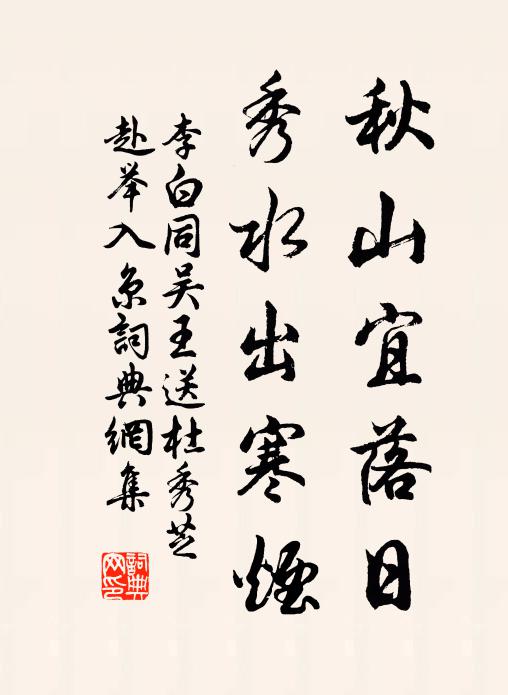 秋山宜落日
秀水出寒煙
李白同吴王送杜秀芝
赴举入京詞典網集
詞典網印